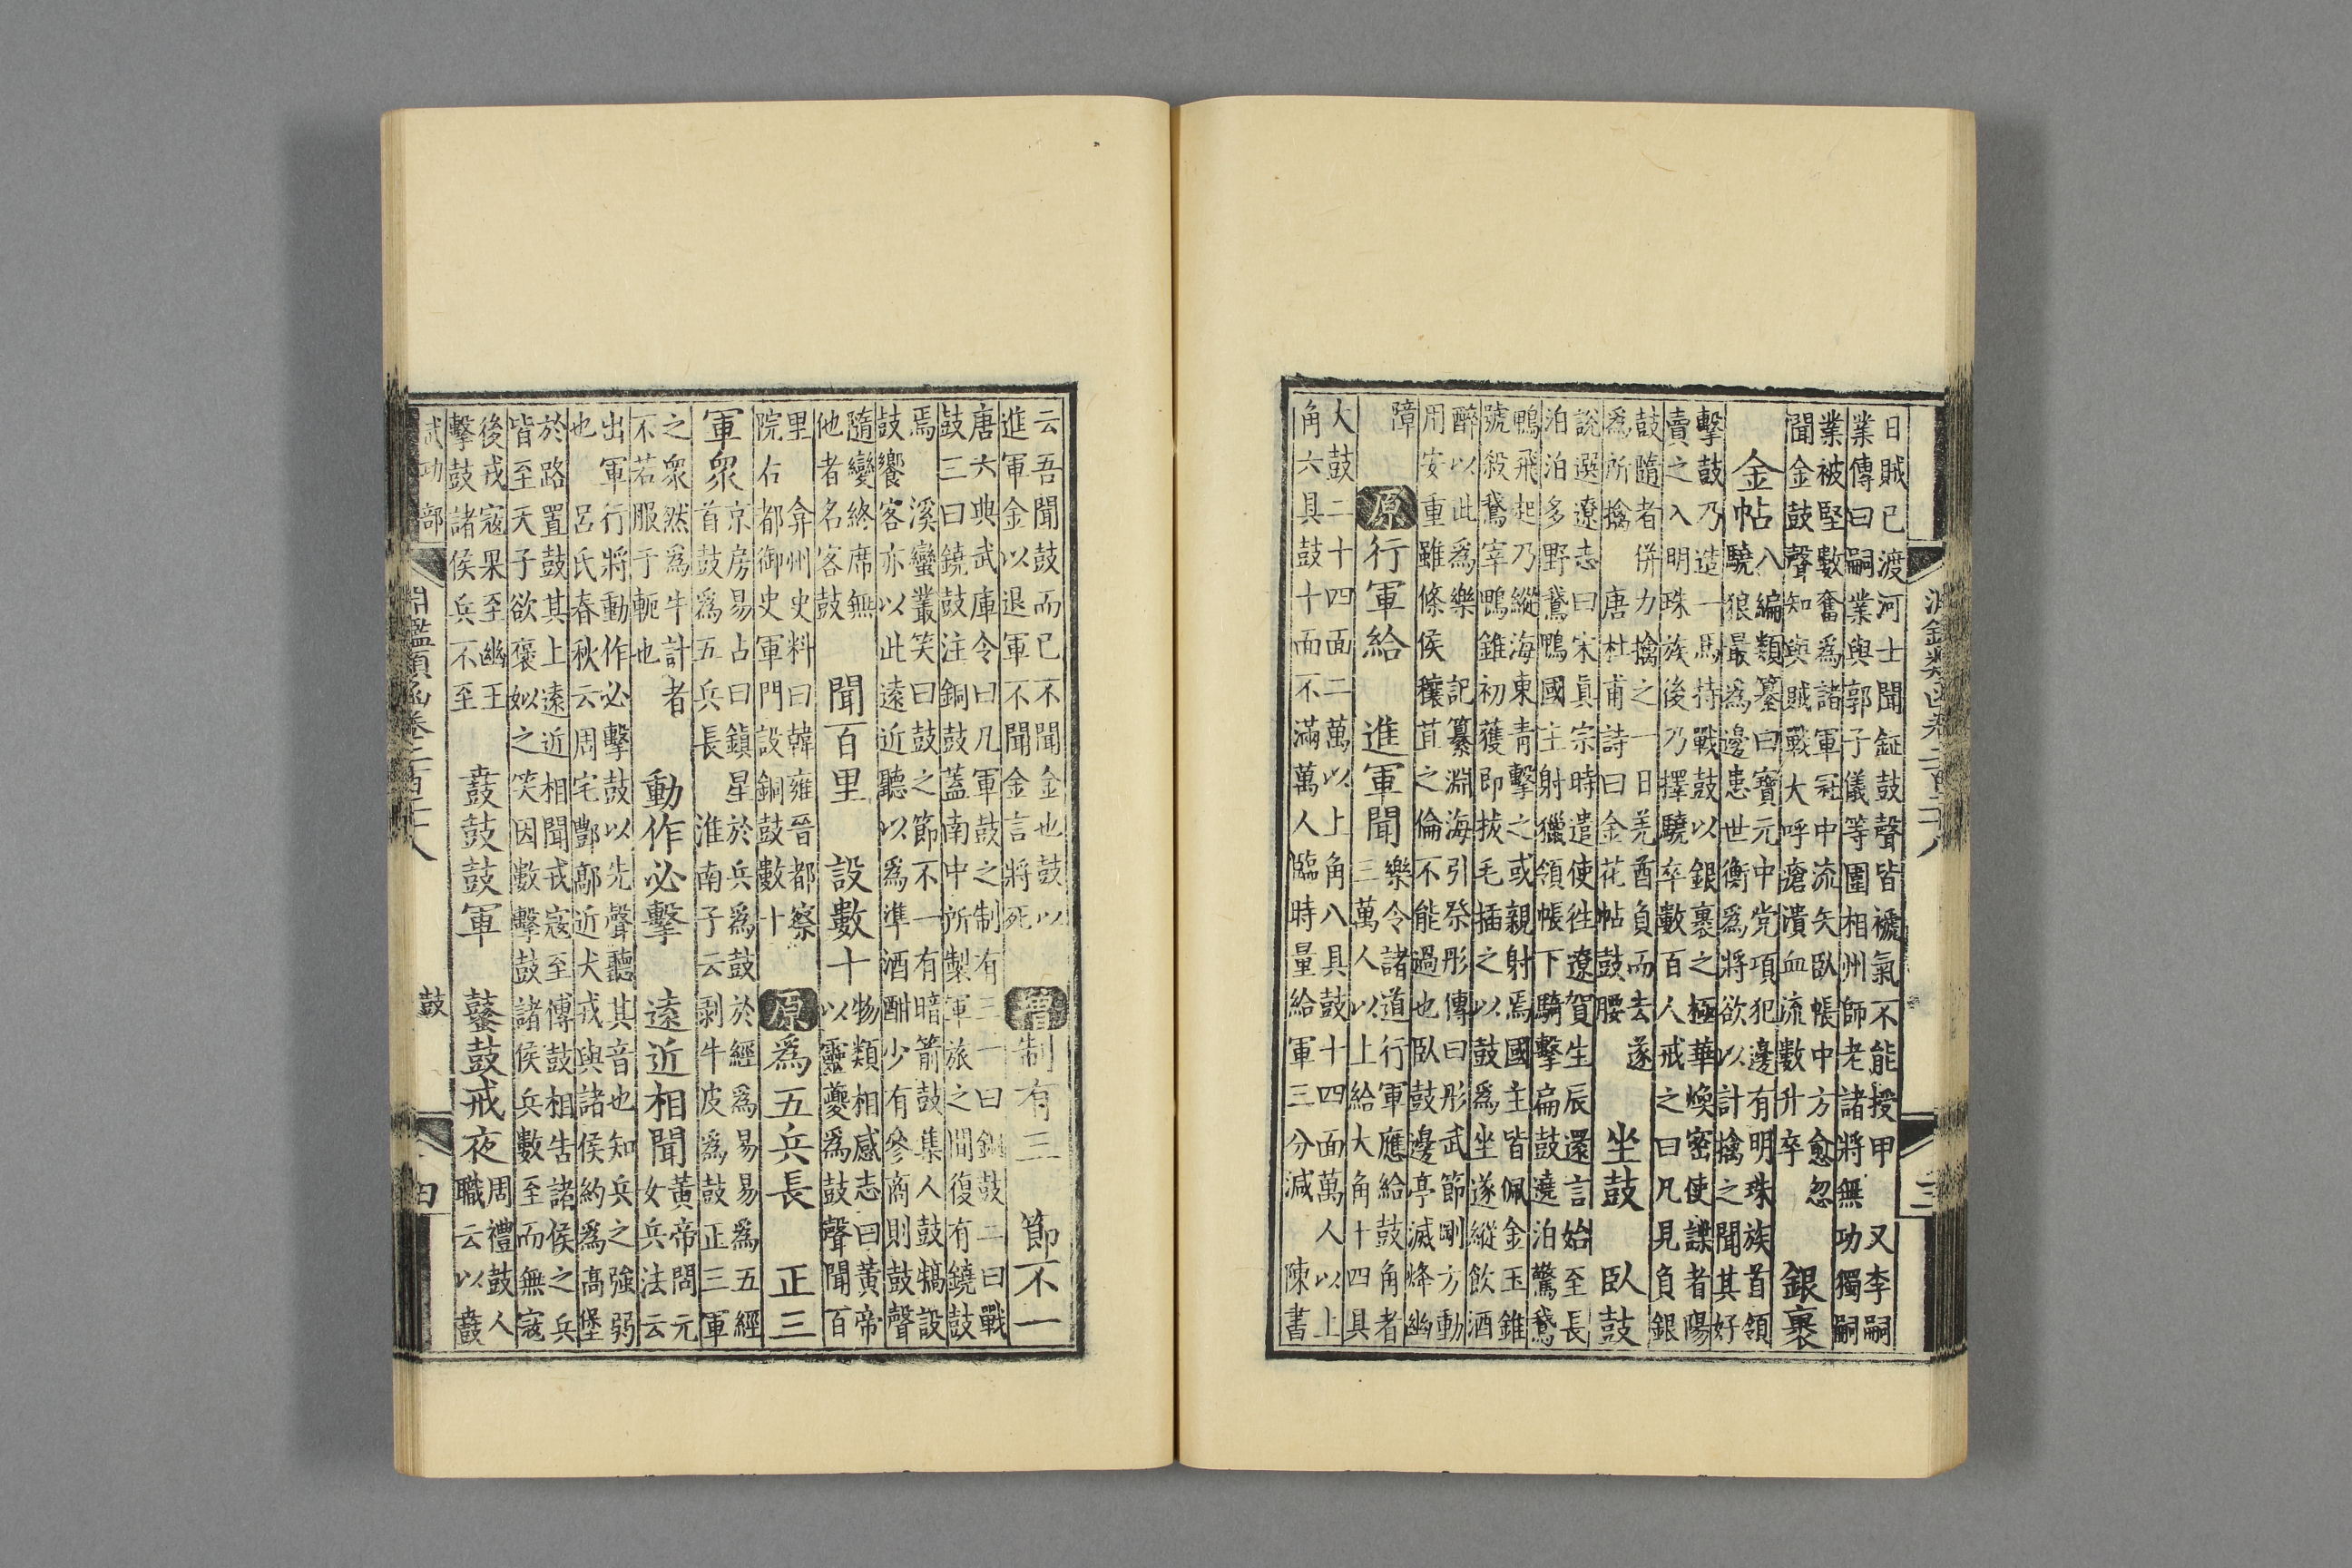 淵鑑類函卷二百二十八 三
日賊已渡河士聞鉦鼓聲皆褫氣不能授甲 又李嗣
業傳曰嗣業與郭子儀等圍相州師老諸將無功獨嗣
業被堅數奮為諸軍冠中流矢臥帳中方愈忽
聞金鼓聲知與賊戰大呼瘡潰血流數升卒
銀裹
金帖
八編類纂曰寶元中党項犯邊有明珠族首領
驍狼最為邊患世衡為將欲以計擒之聞其好
擊鼓乃造一馬持戰鼓以銀裹之極華煥密使諜者陽
賣之入明珠族後乃擇驍卒數百人戒之曰凡見負銀
鼓隨者併力擒之一日羌酋負而去遂
為所擒 唐杜甫詩曰金花帖鼓腰
坐鼓 臥鼓
說選遼志曰宋真宗時遣使徃遼賀生辰還言始至長
泊泊多野鵞鴨國主射獵領帳下騎擊扁鼓遶泊驚鵞
鴨飛起乃縱海東青擊之或親射焉國主皆佩金玉錐
號殺鵞宰鴨錐初獲即拔毛插之以鼓為坐遂縱飲酒
醉以此為樂 記纂淵海引祭彤傳曰彤武節剛方動
用安重雖條侯穰苴之倫不能過也臥鼓邊亭滅烽幽
障
原 行軍給 進軍聞
樂令諸道行軍應給鼓角者
三萬人以上給大角十四具
大鼓二十四面二萬以上角八具鼓十四面萬人以上
角六具鼓十面不滿萬人臨時量給軍三分減 陳書
云吾聞鼓而已不聞金也鼓以
進軍金以退軍不聞金言將死
增 制有三 節不一
唐六典武庫令曰凡軍鼓之制有三一曰銅鼓二曰戰
鼓三曰鐃鼓注銅鼓蓋南中所製軍旅之間復有鐃鼓
焉 溪蠻叢笑曰鼓之節不一有暗箭鼓集人鼓犒設
鼓饗客亦以此遠近聽以為準酒酣少有參商則鼓聲
隨變終席無
他者名客鼓
聞百里 設數十
物類相感志曰黃帝
以靈夔為鼓聲聞百
里 弇州史料曰韓雍晉都察
院右都御史軍門設銅鼓數十
原 為五兵長 正三
軍衆
京房易占曰鎮星於兵為鼓於經為易易為五經
首鼓為五兵長 淮南子云剥牛皮為鼓正三軍
之衆然為牛計者
不若服于軛也
動作必擊 遠近相聞
黃帝問元
女兵法云
出軍行將動作必擊鼓以先聲聽其音也知兵之強弱
也 呂氏春秋云周宅酆鄗近犬戎與諸侯約為高堡
於路置鼓其上遠近相聞戎寇至傳鼓相告諸侯之兵
皆至天子欲褒姒之笑因數擊鼓諸侯兵數至而無寇
後戎寇果至幽王
擊鼓諸侯兵不至
鼖鼓鼓軍 鼛鼓戒夜
周禮鼓人
職云以鼖
武功部 淵鑑類函卷二百二十八 鼓 四